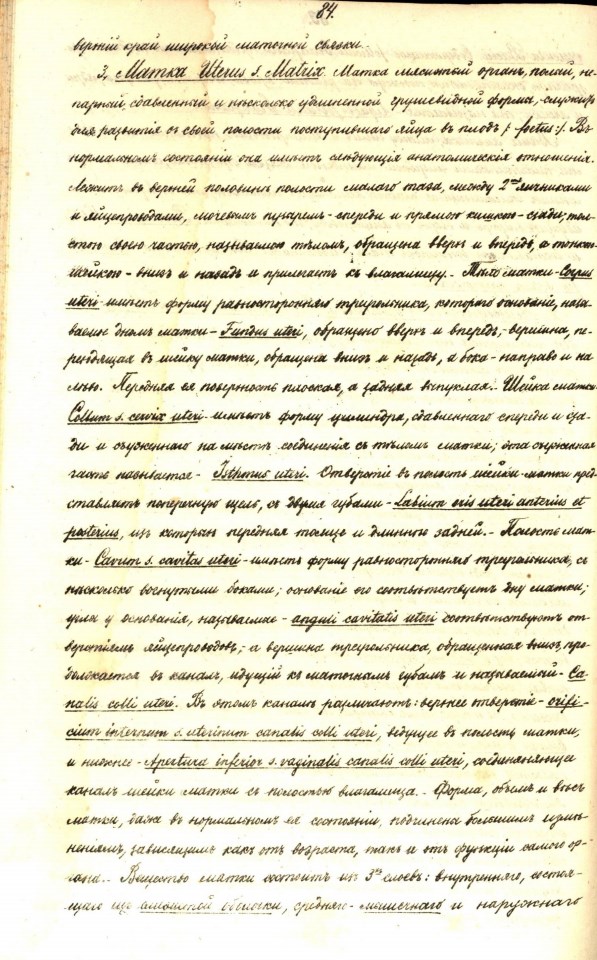 84.
верхній край широкой маточной связки.
3, Матка Uterus s. Matrix Матка мясистый органъ, полый, не-
парный, сдавленный и нѣсколько удлиненной грушевидной формы, служитъ
для развитія въ своей полости поступившаго яйца въ плодъ /: foetus:/. Въ
нормальномъ состояніи она имѣетъ слѣдующія анатомическія отношенія.
Лежитъ въ верхней половинѣ полости малаго таза, между 2мя яичниками
и яйцепроводами, мочевымъ пузыремъ - спереди и прямою кишкою - сзади; тол-
стою своею частью, называемою тѣломъ, обращена вверхъ и впередъ, а тонкою
шейкою - внизъ и назадъ и прилегаетъ къ влагалищу. - Тѣло матки - Corpus
uteri - имѣетъ форму равносторонняго треугольника, котораго основаніе, назы-
ваемое дномъ матки - Fundus uteri, обращено вверхъ и впередъ, - вершина, пе-
реходящая въ шейку матки, обращена внизъ и назадъ, а бока - направо и на-
лѣво. Передняя ея поверхность плоская, а задняя выпуклая. - Шейка матки
Collum s. cervix uteri - имѣетъ форму цилиндра, сдавленнаго спереди и сза-
ди и съуженнаго на мѣстѣ соединенія съ тѣломъ матки; эта съуженная
часть называется - Isthmus uteri. Отверстіе въ полость шейки - матки пред-
ставляетъ поперечную щель, съ двумя губами - Labium oris uteri anterius et
posterius, изъ которыхъ передняя толще и длиннѣе задней. - Полость мат-
ки - Cavum s. cavitas uteri - имѣетъ форму равносторонняго треугольника, съ
нѣсколько вогнутыми боками; основаніе его соотвѣтствуетъ дну матки;
углы у основанія, называемые - anguli cavitatis uteri соотвѣтствуютъ от-
верстіямъ яйцепроводовъ; - а вершина треугольника, обращенная внизъ, про-
должается въ каналъ, идущій къ маточнымъ губамъ и называемый - Ca-
nalis colli uteri. Въ этомъ каналѣ различаютъ: верхнее отверстіе - orifi-
cium internum s. uterinum canalis colli uteri, ведущее въ полость матки,
и нижнее - Apertura inferior s. vaginalis canalis colli uteri, соединяющее
каналъ шейки матки съ полостью влагалища. - Форма, объемъ и вѣсъ
матки, даже въ нормальномъ ея состояніи, подчинена большимъ измѣ-
неніямъ, зависящимъ какъ отъ возраста, такъ и отъ функціи самого ор-
гана. - Вещество матки состоитъ изъ 3хъ слоевъ: внутренняго, состоя-
щаго изъ слизистой оболочки, средняго - мышечнаго и наружнаго